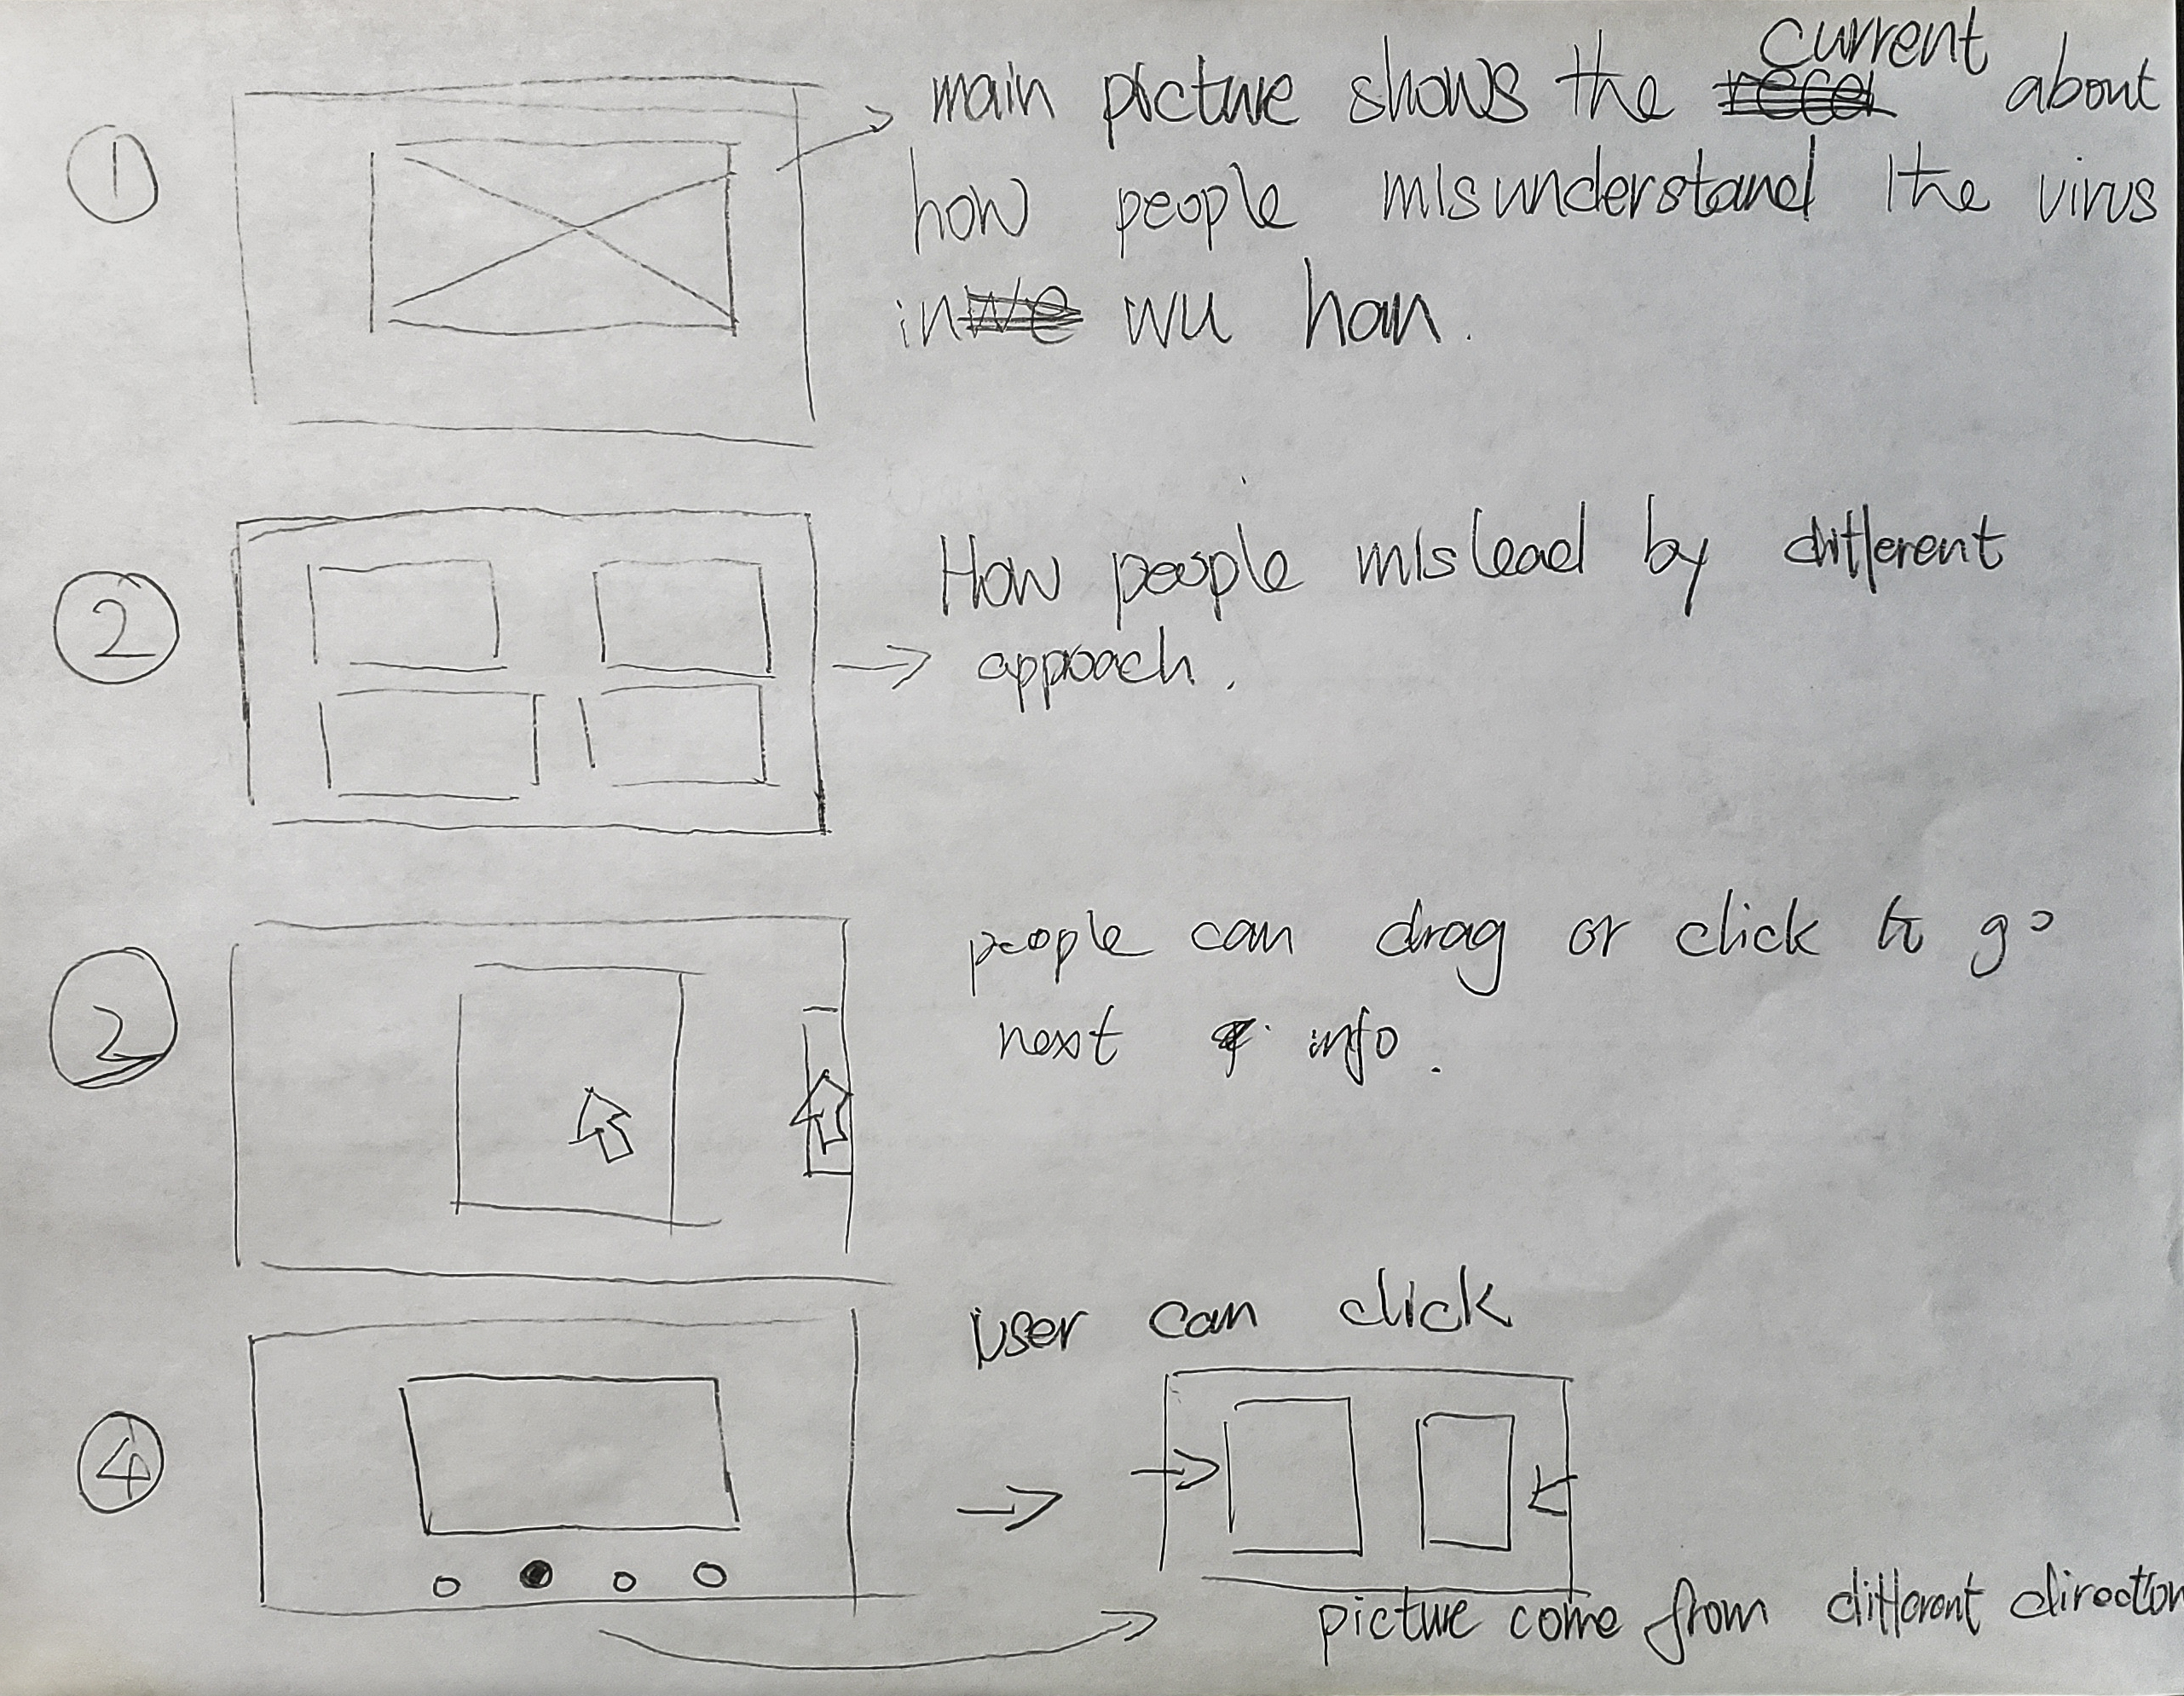 ①
main picture shows the current about
how people misunderstand the virus
in wu han.
②
How people mislead by different
approach.
2
people can drag or click to go
next info.
④
user can click
picture come from different direction